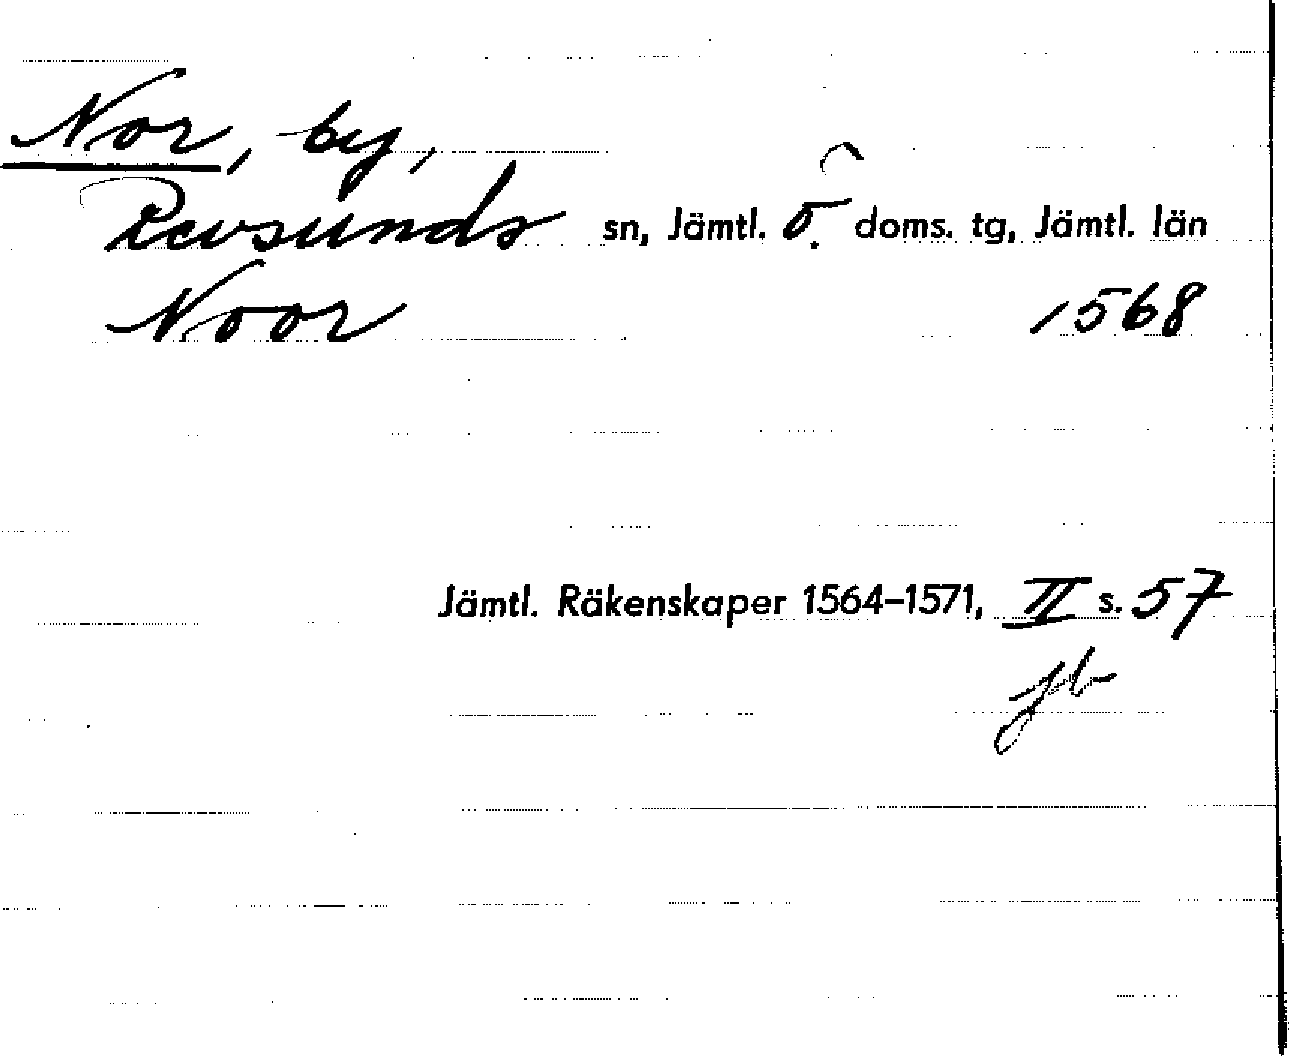 Nor, by,
Revsunds sn, Jämtl. ö. doms. tg, Jämtl. län
Noor 1568
Jämtl. Räkenskaper 1564-1571, II s. 57